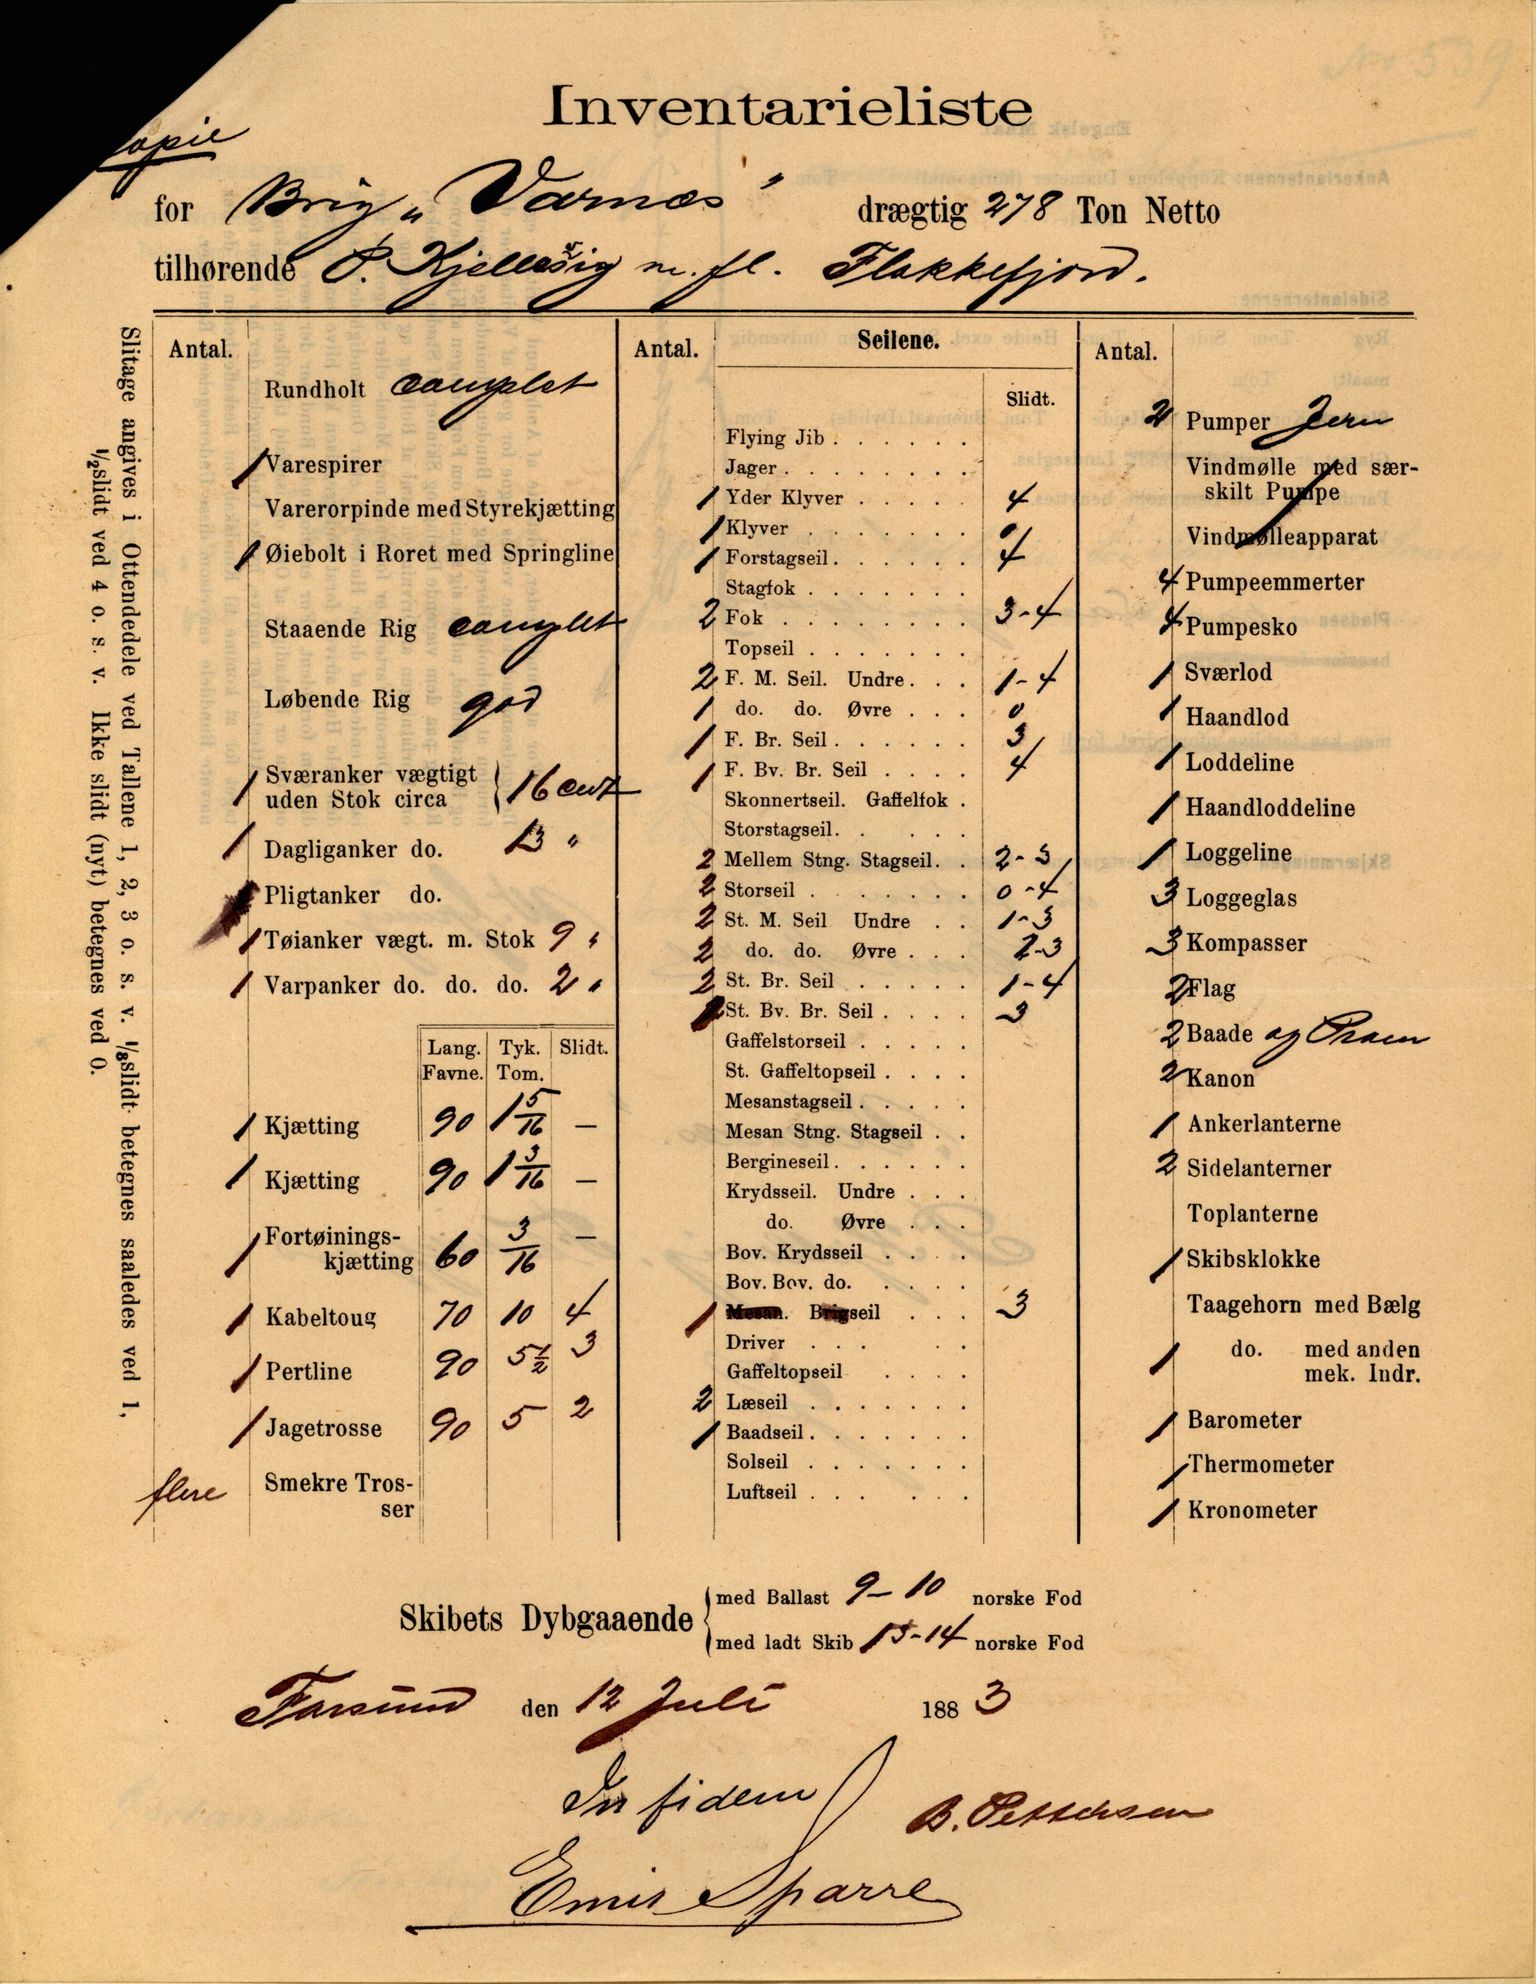 No 539
Inventarieliste
Copie
for Brig „Varnæs" drægtig 278 Ton Netto
tilhørende P. Kjellesvig m. fl. Flekkefjord.
Slitage angives i Ottendedele ved Tallene 1, 2, 3 o. s. v. 1/8 slidt betegnes saaledes ved 1,
1/2 slidt ved 4 o. s. v. Ikke slidt (nyt) betegnes ved 0.
Antal.
Rundholt complet
1 Varespirer
Varerorpinde med Styrekjætting
1 Øiebolt i Roret med Springline
Staaende Rig complet
Løbende Rig god
1 Sværanker vægtigt
uden Stok circa } 16 cwt
1 Dagliganker do. 13 "
Pligtanker do.
1 Tøianker vægt. m. Stok 9 "
1 Varpanker do. do. do. 2 "
Lang. Tyk. Slidt.
Favne. Tom.
1 Kjætting 90 1 5/16 —
1 Kjætting 90 1 3/16 —
1 Fortøinings-
kjætting 60 3/16 —
1 Kabeltoug 70 10 4
1 Pertline 90 5 1/2 3
1 Jagetrosse 90 5 2
flere Smekre Tros-
ser
Antal. Seilene.
Slidt.
Flying Jib . . . . . .
Jager . . . . . . .
1 Yder Klyver . . . . . 4
1 Klyver . . . . . . 0
1 Forstagseil . . . . . . 4
Stagfok . . . . . . .
2 Fok . . . . . . . . 3-4
Topseil . . . . . . .
2 F. M. Seil. Undre . . . 1-4
1 do. do. Øvre . . . 0
1 F. Br. Seil . . . . . . 3
1 F. Bv. Br. Seil . . . . 4
Skonnertseil. Gaffelfok .
Storstagseil. . . . .
2 Mellem Stng. Stagseil. . 2-3
2 Storseil . . . . . . . 0-4
2 St. M. Seil Undre . . 1-3
2 do. do. Øvre . . . 2-3
2 St. Br. Seil . . . . . 1-4
St. Bv. Br. Seil . . . . 3
Gaffelstorseil . . . . .
St. Gaffeltopseil . . . .
Mesanstagseil . . . . .
Mesan Stng. Stagseil . .
Bergineseil . . . . . .
Krydsseil. Undre . . .
do. Øvre . . .
Bov. Krydsseil . . . .
Bov. Bov. do. . . . .
1 Mesan. Brigseil . . . 3
Driver . . . . .
Gaffeltopseil . . . .
2 Læseil . . . . . . .
1 Baadseil . . . . . . .
Solseil . . . . . . .
Luftseil . . . . . .
Antal.
2 Pumper Jern
Vindmølle med sær-
skilt Pumpe
Vindmølleapparat
4 Pumpeemmerter
4 Pumpesko
1 Sværlod
1 Haandlod
1 Loddeline
1 Haandloddeline
1 Loggeline
3 Loggeglas
3 Kompasser
2 Flag
2 Baade og Pram
2 Kanon
1 Ankerlanterne
2 Sidelanterner
Toplanterne
1 Skibsklokke
Taagehorn med Bælg
1 do. med anden
mek. Indr.
1 Barometer
1 Thermometer
1 Kronometer
Skibets Dybgaaende { med Ballast 9-10 norske Fod
med ladt Skib 13-14 norske Fod
Farsund den 12 Juli 1883
In fidem
B. Pettersen
Emil Sparre